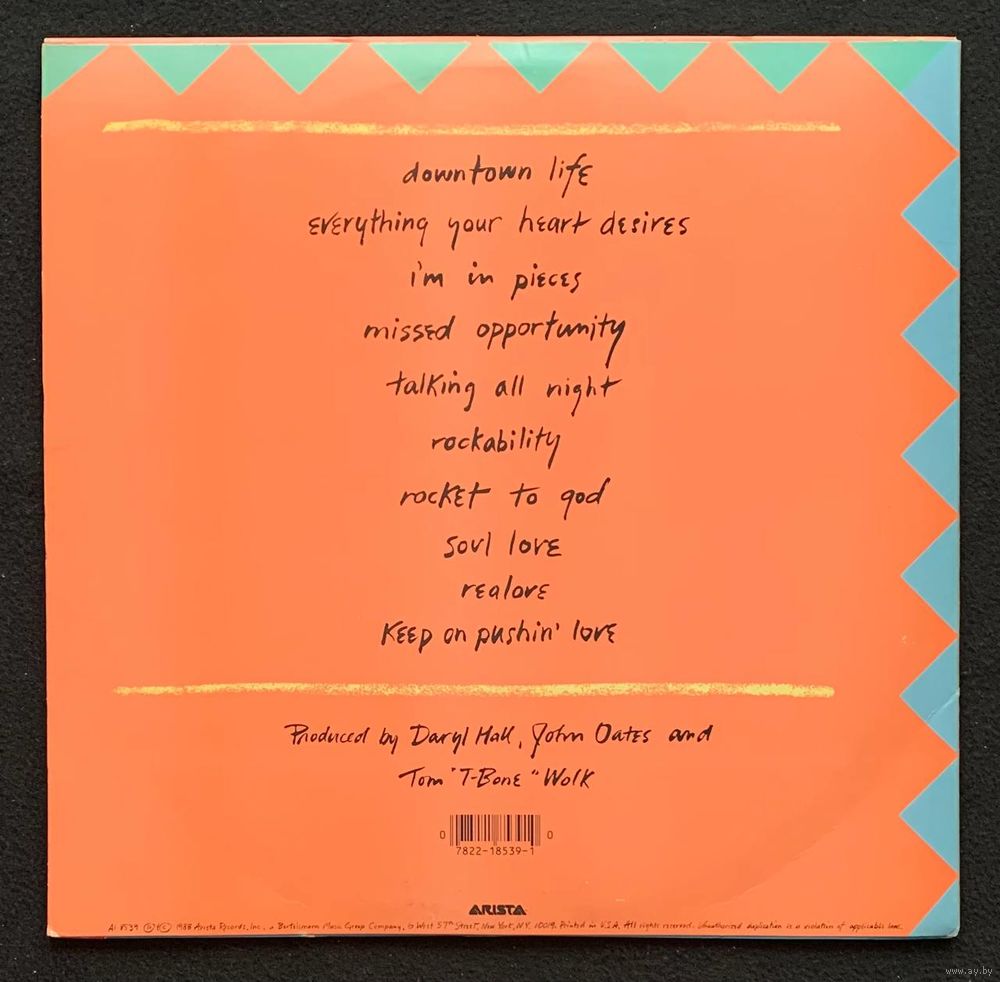 downtown life
everything your heart desires
i'm in pieces
missed opportunity
talking all night
rockability
rocket to god
soul love
realove
Keep on pushin' love
Produced by Daryl Hall, John Oates and
Tom "T-Bone" Wolk
0 7822-18539-1 0
ARISTA
AL 8539 Ⓟ © 1988 Arista Records, Inc., a Bertelsmann Music Group Company, 6 West 57th Street, New York, N.Y. 10019. Printed in U.S.A. All rights reserved. Unauthorized duplication is a violation of applicable laws.
www.ay.by